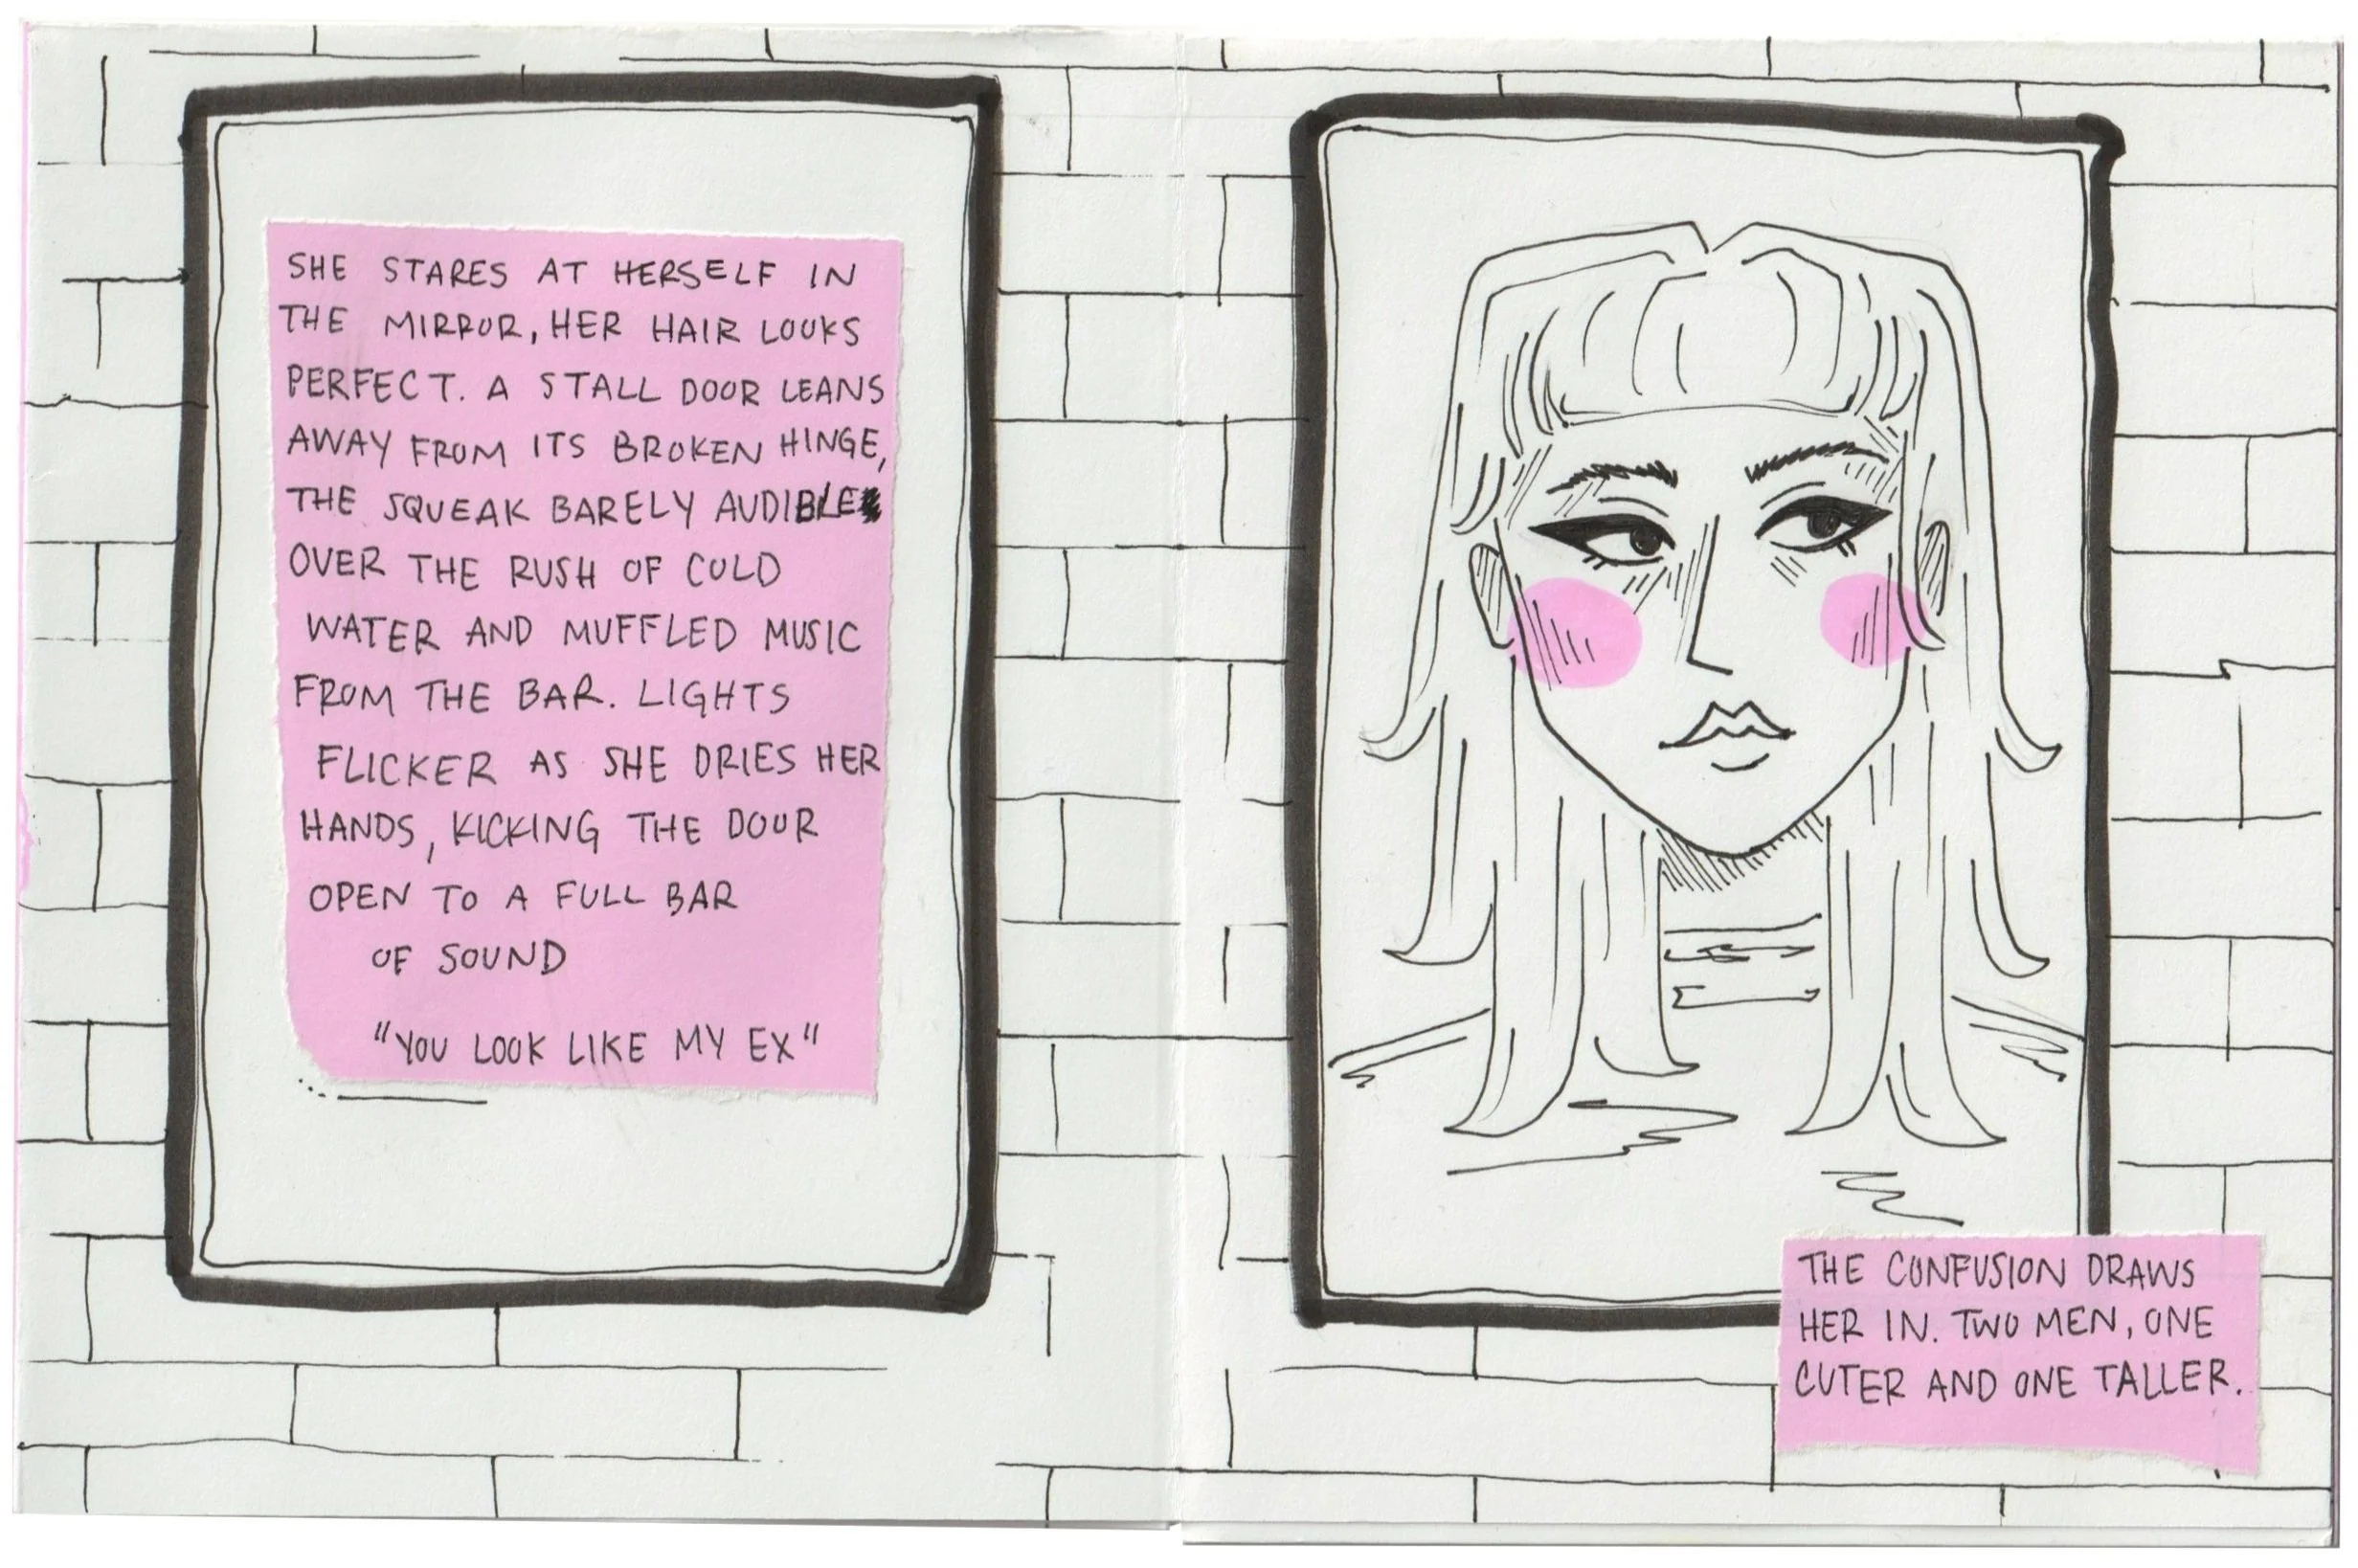 SHE STARES AT HERSELF IN
THE MIRROR, HER HAIR LOOKS
PERFECT. A STALL DOOR LEANS
AWAY FROM ITS BROKEN HINGE,
THE SQUEAK BARELY AUDIBLE
OVER THE RUSH OF COLD
WATER AND MUFFLED MUSIC
FROM THE BAR. LIGHTS
FLICKER AS SHE DRIES HER
HANDS, KICKING THE DOOR
OPEN TO A FULL BAR
OF SOUND
"YOU LOOK LIKE MY EX"
THE CONFUSION DRAWS
HER IN. TWO MEN, ONE
CUTER AND ONE TALLER.